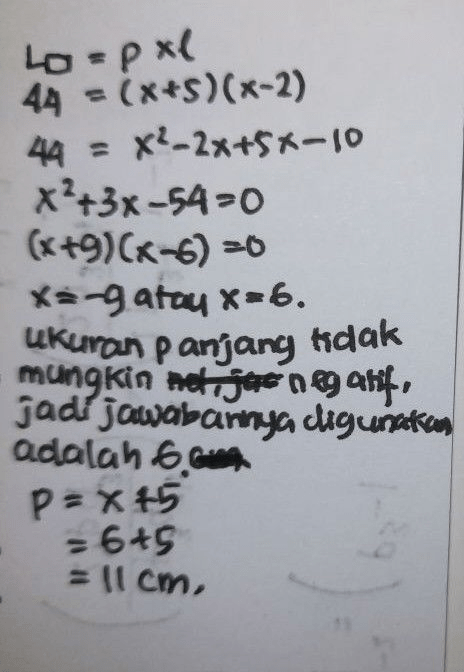 L▭ = p x l
44 = (x+5)(x-2)
44 = x²-2x+5x-10
x²+3x-54=0
(x+9)(x-6)=0
x=-9 atau x=6.
ukuran panjang tidak
mungkin negatif,
jadi jawabannya digunakan
adalah 6.
p = x+5
= 6+5
= 11 cm.